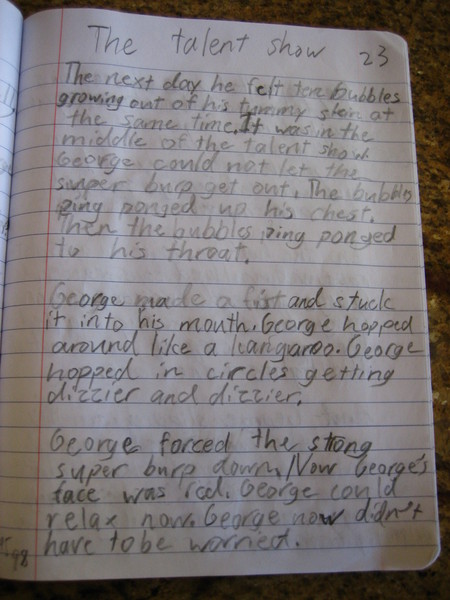 The talent show
23
The next day he felt ten bubbles
growing out of his tummy skin at
the same time. It was in the
middle of the talent show.
George could not let the
super burp get out. The bubbles
ping ponged up his chest.
Then the bubbles ping ponged
to his throat.
George made a fist and stuck
it into his mouth. George hopped
around like a kangaroo. George
hopped in circles getting
dizzier and dizzier.
George forced the strong
super burp down. Now George's
face was red. George could
relax now. George now didn't
have to be worried.
98